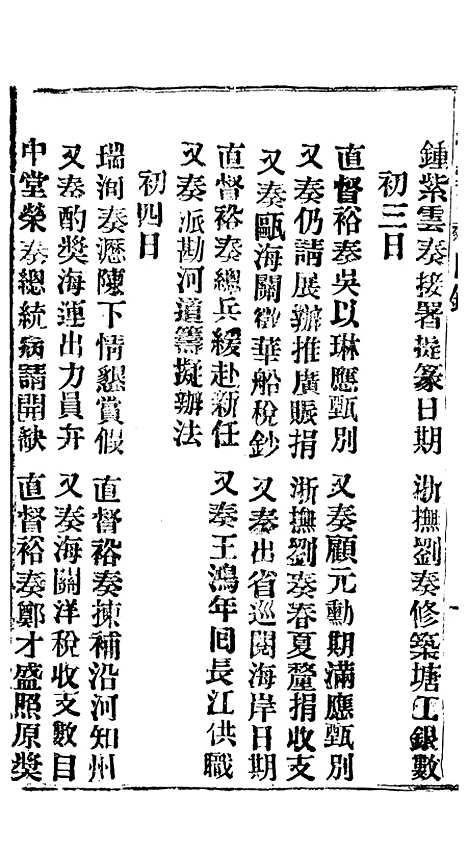 鍾紫雲奏接署提篆日期　浙撫劉奏修築塘工銀數
初三日
直督裕奏吳以琳應甄別　又奏顧元勳期滿應甄別
又奏仍請展辦推廣賑捐　浙撫劉奏春夏釐捐收支
又奏甌海關徵華船稅鈔　又奏出省巡閱海岸日期
直督裕奏總兵緩赴新任　又奏王鴻年回長江供職
又奏派勘河道籌擬辦法
初四日
瑞洵奏瀝陳下情懇賞假　直督裕奏揀補沿河知州
又奏酌獎海運出力員弁　又奏海關洋稅收支數目
中堂榮奏總統病請開缺　直督裕奏鄭才盛照原獎